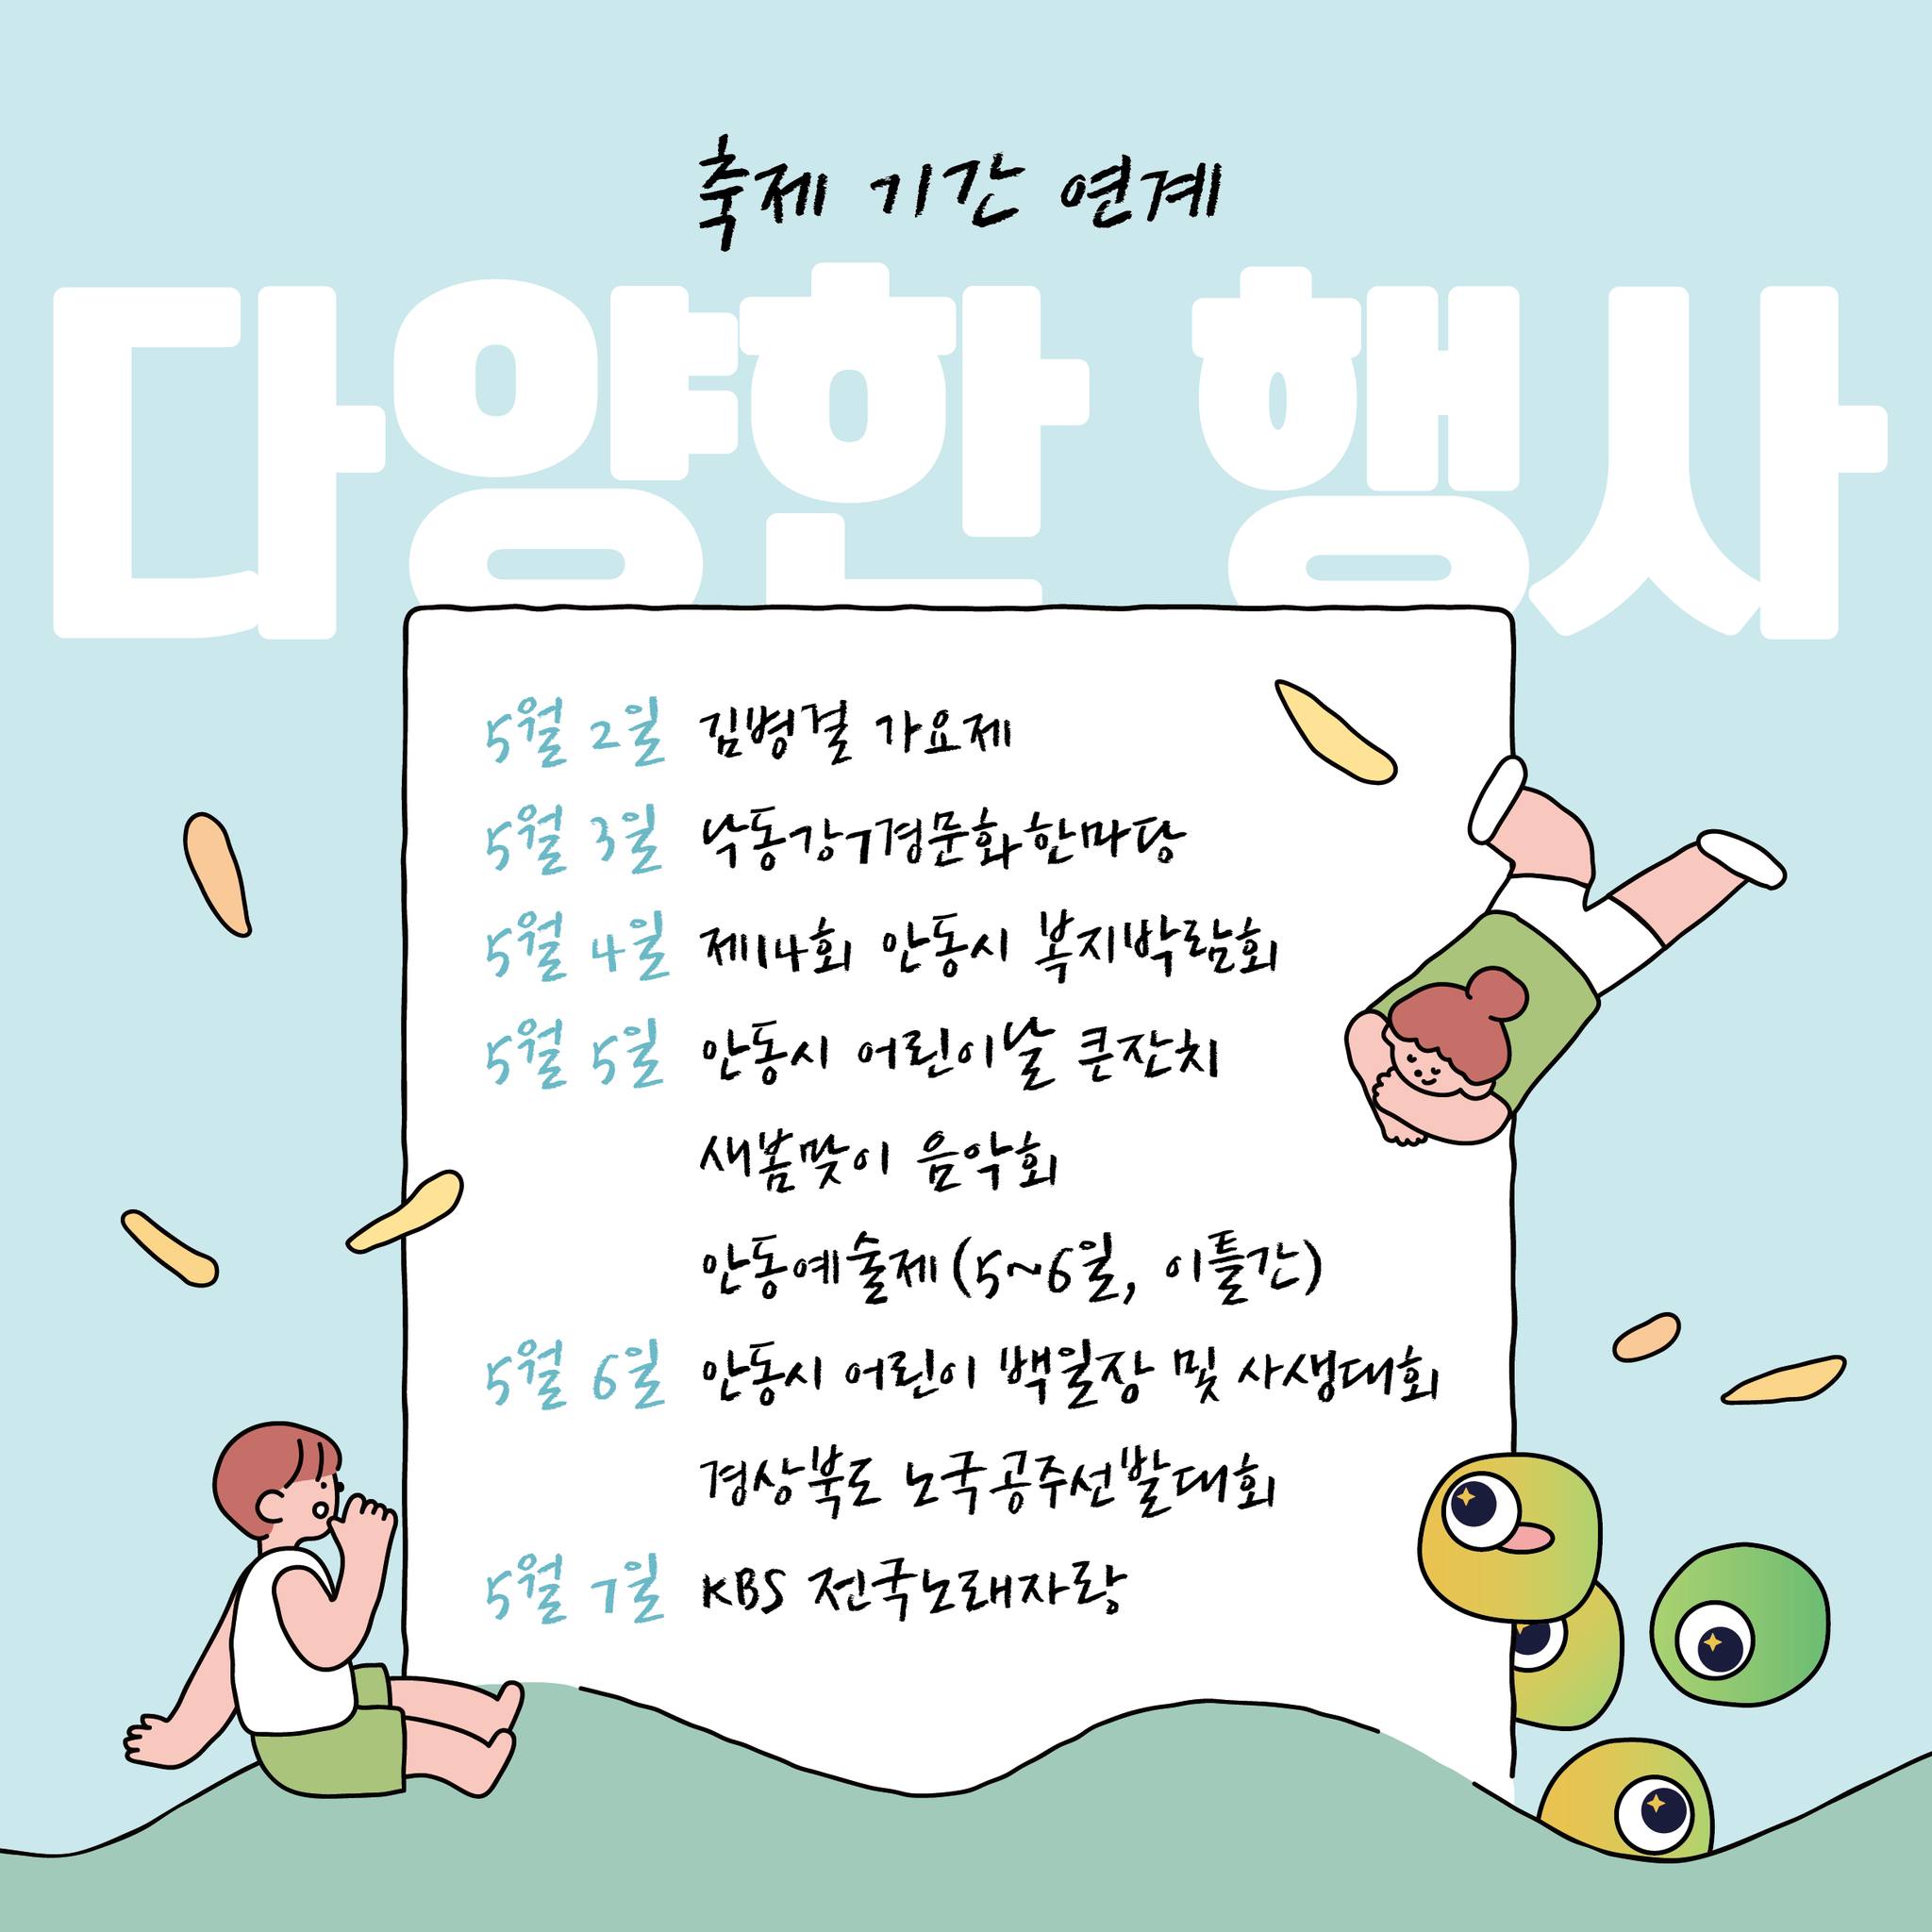 축제 기간 연계
다양한 행사
5월 2일 김병걸 가요제
5월 3일 낙동강7경문화한마당
5월 4일 제14회 안동시 복지박람회
5월 5일 안동시 어린이날 큰잔치
새봄맞이 음악회
안동예술제(5~6일, 이틀간)
5월 6일 안동시 어린이 백일장 및 사생대회
경상북도 노국공주선발대회
5월 7일 KBS 전국노래자랑